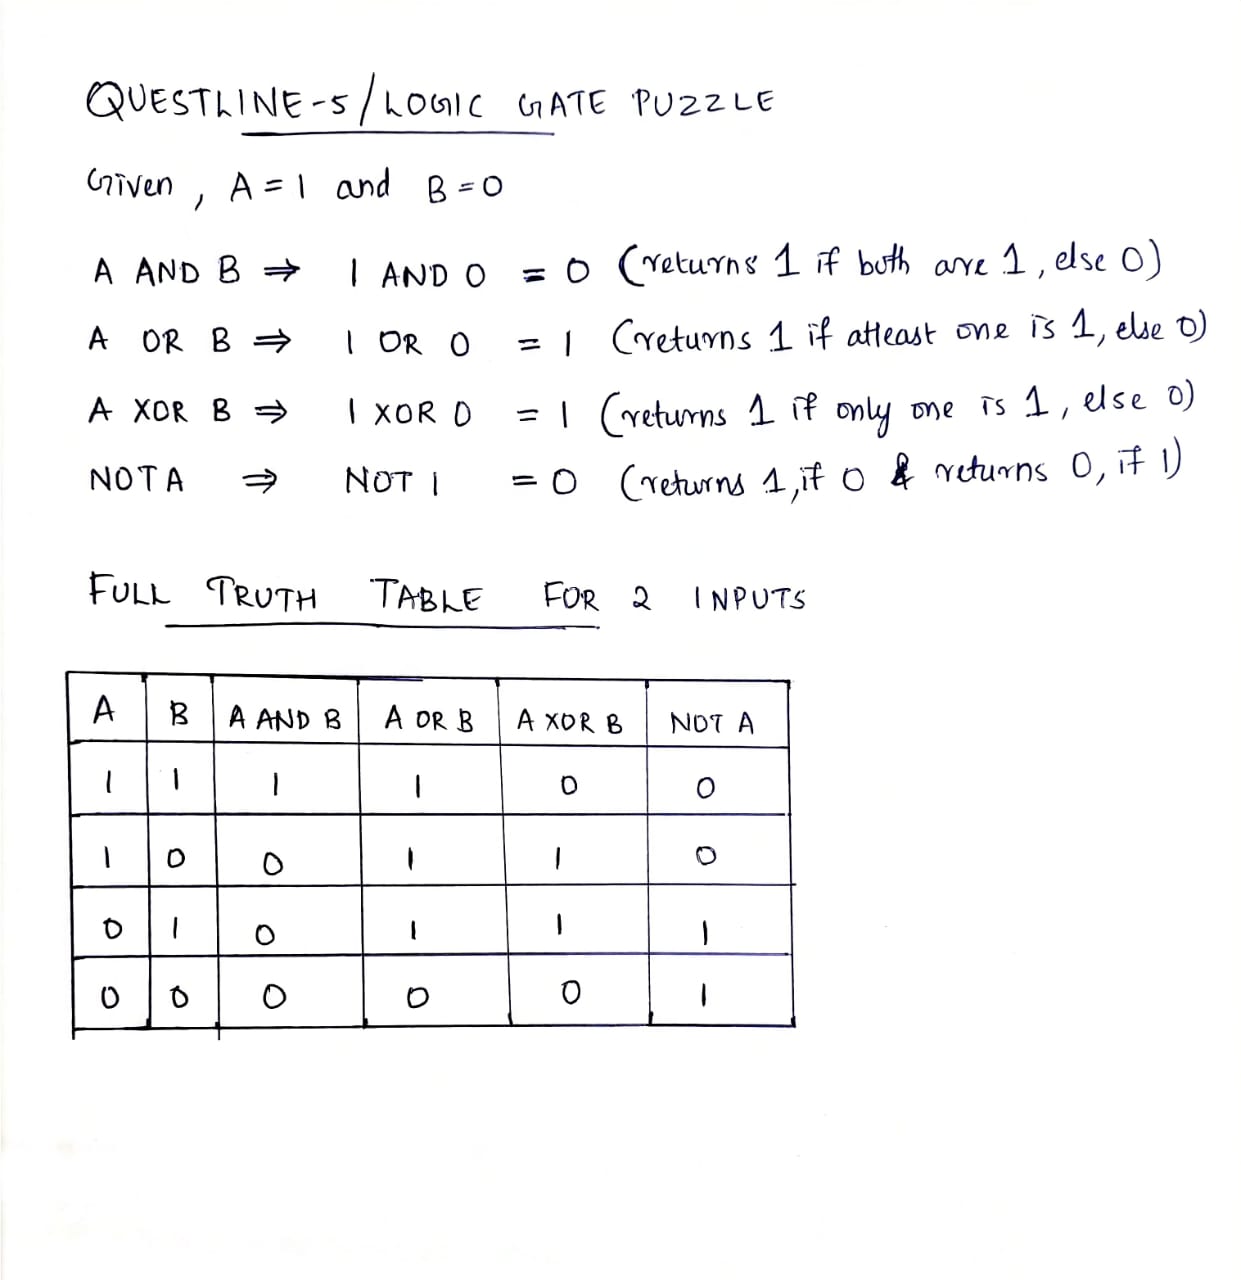 QUESTLINE-5/LOGIC GATE PUZZLE
Given, A=1 and B=0
A AND B ⇒ 1 AND 0 = 0 (returns 1 if both are 1, else 0)
A OR B ⇒ 1 OR 0 = 1 (returns 1 if atleast one is 1, else 0)
A XOR B ⇒ 1 XOR 0 = 1 (returns 1 if only one is 1, else 0)
NOT A ⇒ NOT 1 = 0 (returns 1, if 0 & returns 0, if 1)
FULL TRUTH TABLE FOR 2 INPUTS
A B A AND B A OR B A XOR B NOT A
1 1 1 1 0 0
1 0 0 1 1 0
0 1 0 1 1 1
0 0 0 0 0 1